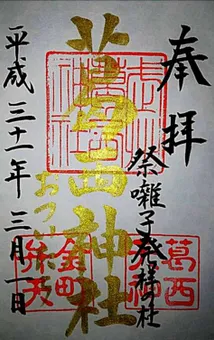 奉拝
祭囃子発祥の社
葛西神社
平成三十一年三月一日
葛西神社
金町